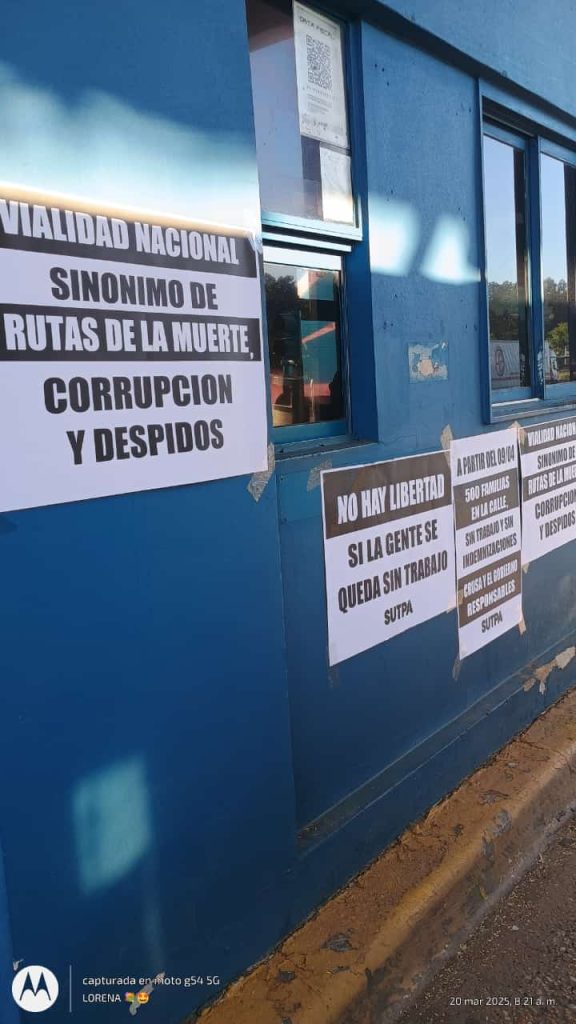 DATA FISCAL
VIALIDAD NACIONAL
SINONIMO DE
RUTAS DE LA MUERTE,
CORRUPCION
Y DESPIDOS
NO HAY LIBERTAD
SI LA GENTE SE
QUEDA SIN TRABAJO
SUTPA
A PARTIR DEL 09/04
500 FAMILIAS
EN LA CALLE
SIN TRABAJO Y SIN
INDEMNIZACIONES
CRUSA Y EL GOBIERNO
RESPONSABLES
SUTPA
VIALIDAD NACION
SINONIMO DE
RUTAS DE LA MUE
CORRUPCION
Y DESPIDOS
capturada en moto g54 5G
LORENA 💐🤩
20 mar 2025, 8:21 a. m.